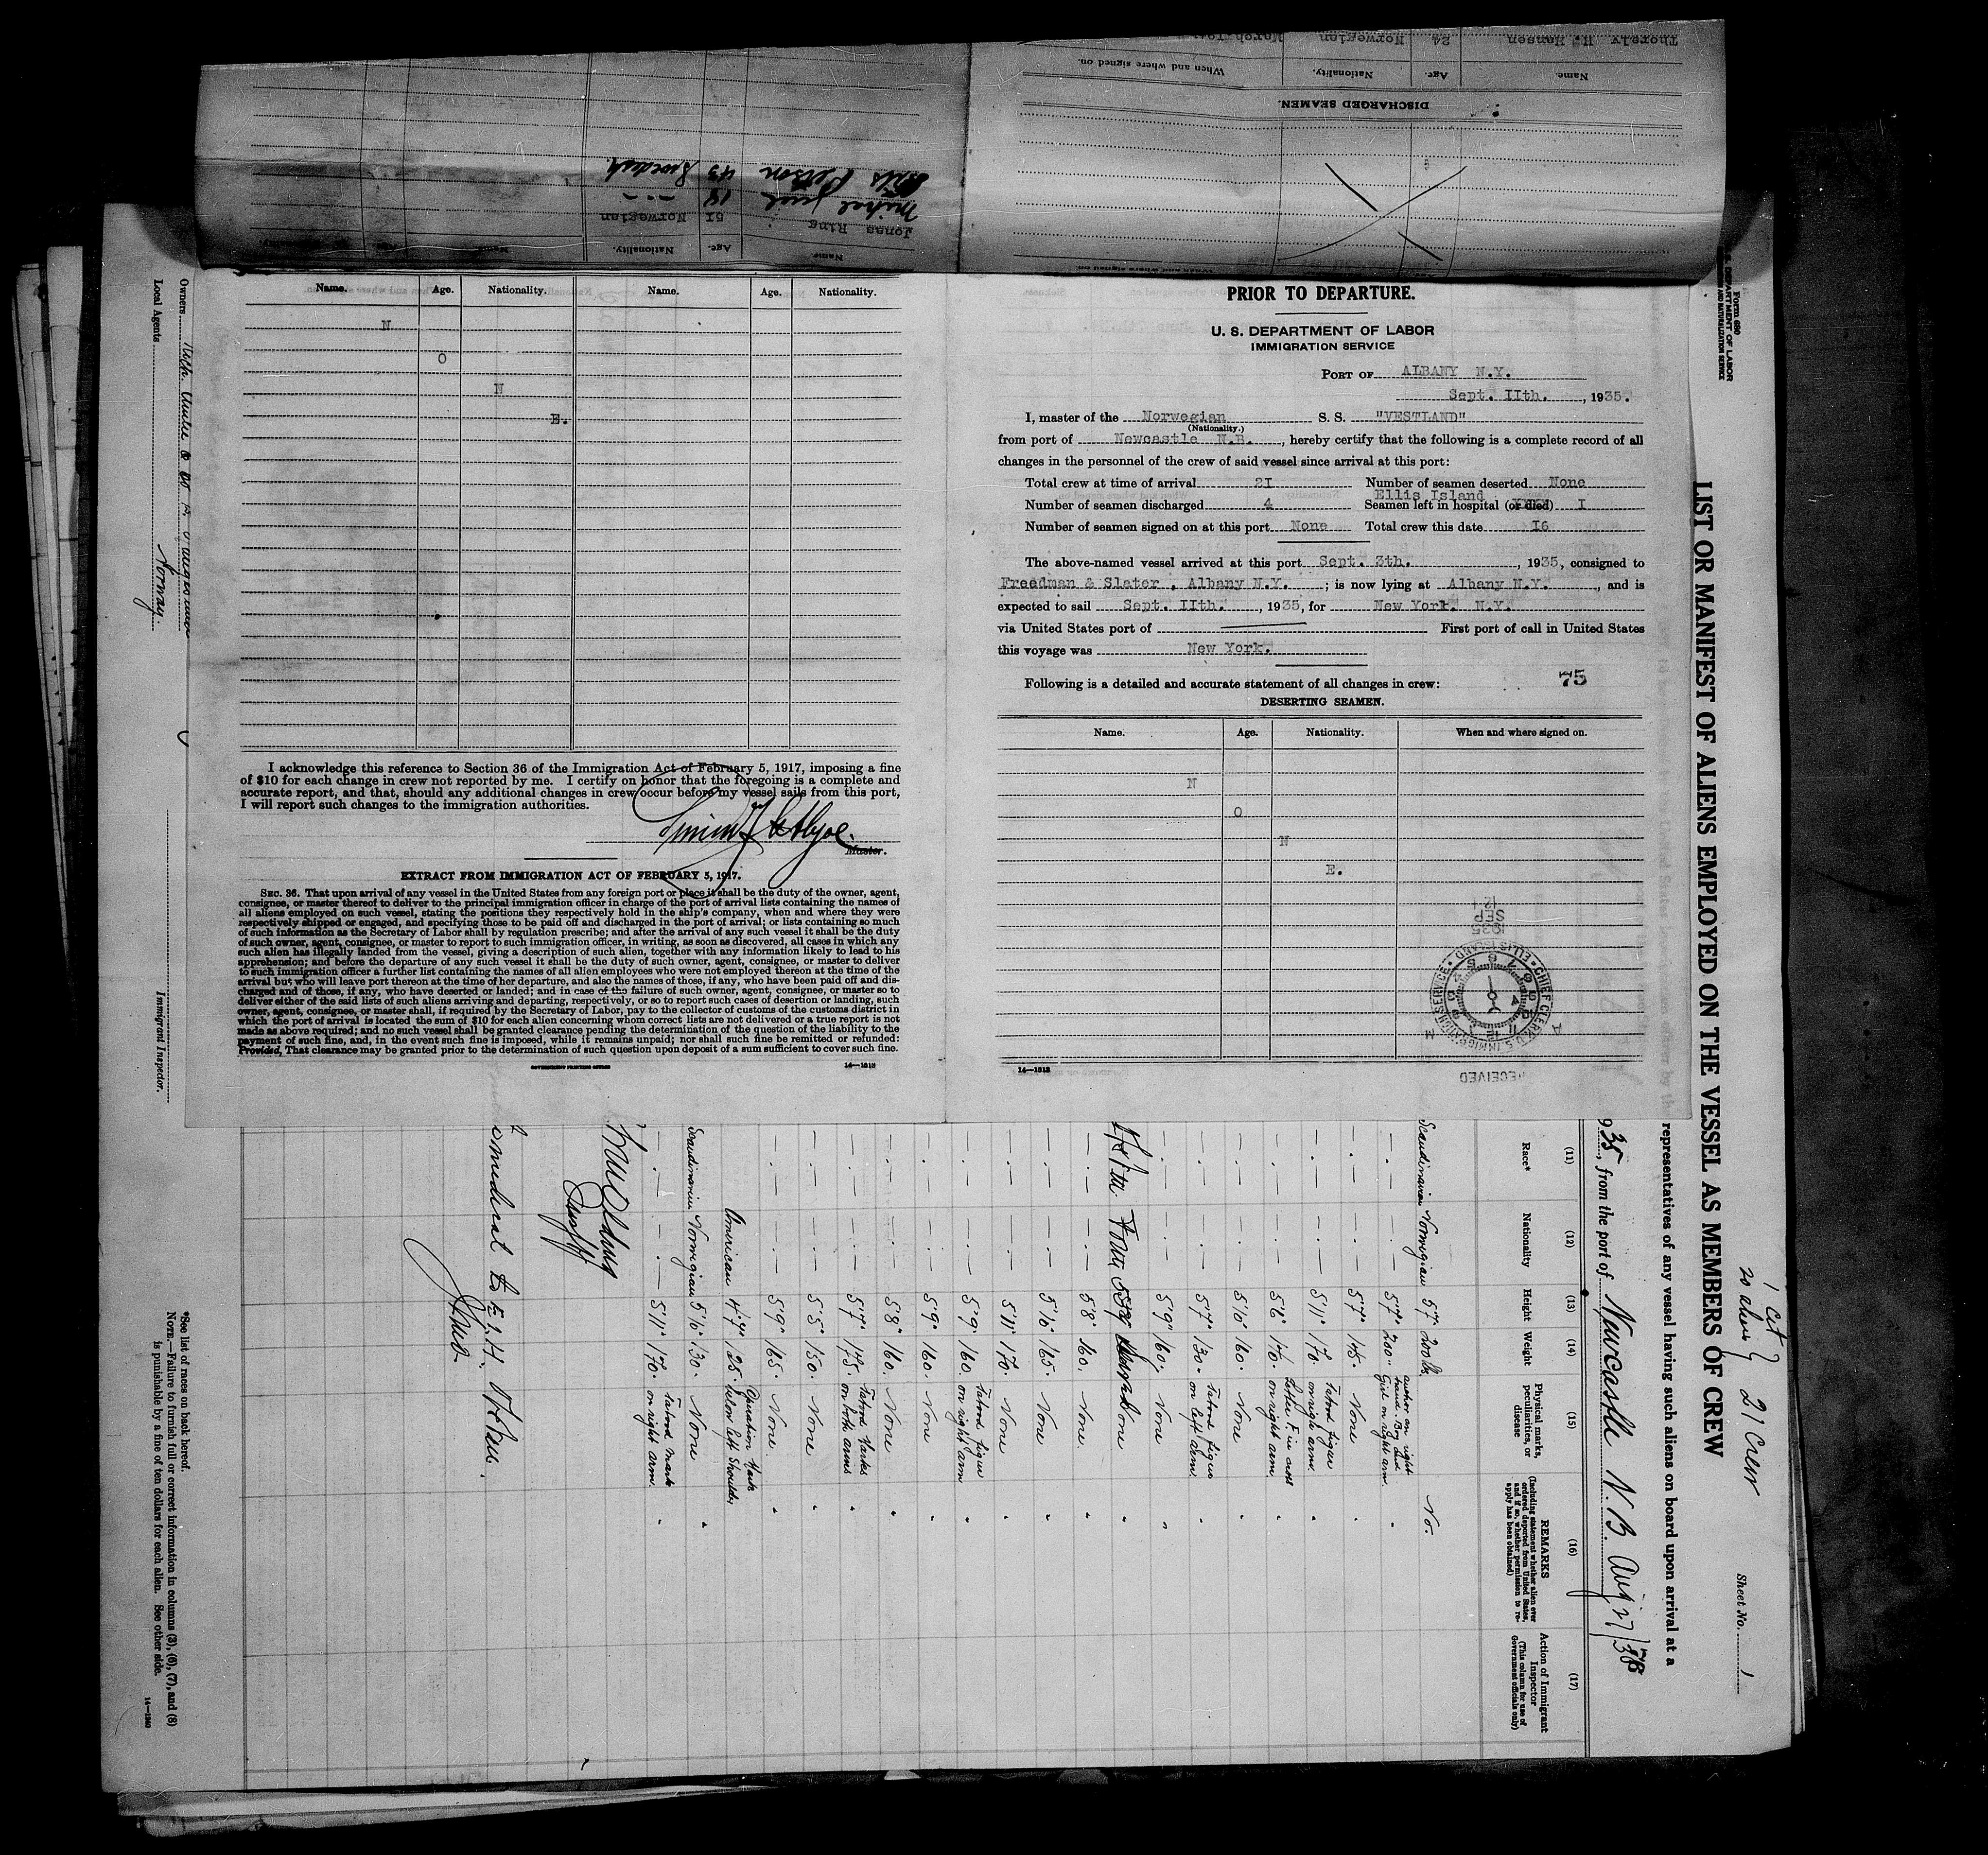 Thorely H. Hansen 24 Norwegian
Name. Age. Nationality. When and where signed on.
DISCHARGED SEAMEN.
Jonas Ring 51 Norwegian
18
43 Swedish
Name Age. Nationality.
Name. Age. Nationality. Name. Age. Nationality.
N
O
N
E.
I acknowledge this reference to Section 36 of the Immigration Act of February 5, 1917, imposing a fine
of $10 for each change in crew not reported by me. I certify on honor that the foregoing is a complete and
accurate report, and that, should any additional changes in crew occur before my vessel sails from this port,
I will report such changes to the immigration authorities.
Master.
EXTRACT FROM IMMIGRATION ACT OF FEBRUARY 5, 1917.
SEC. 36. That upon arrival of any vessel in the United States from any foreign port or place it shall be the duty of the owner, agent,
consignee, or master thereof to deliver to the principal immigration officer in charge of the port of arrival lists containing the names of
all aliens employed on such vessel, stating the positions they respectively hold in the ship's company, when and where they were
respectively shipped or engaged, and specifying those to be paid off and discharged in the port of arrival; or lists containing so much
of such information as the Secretary of Labor shall by regulation prescribe; and after the arrival of any such vessel it shall be the duty
of such owner, agent, consignee, or master to report to such immigration officer, in writing, as soon as discovered, all cases in which any
such alien has illegally landed from the vessel, giving a description of such alien, together with any information likely to lead to his
apprehension; and before the departure of any such vessel it shall be the duty of such owner, agent, consignee, or master to deliver
to such immigration officer a further list containing the names of all alien employees who were not employed thereon at the time of the
arrival but who will leave port thereon at the time of her departure, and also the names of those, if any, who have been paid off and dis-
charged and of those, if any, who have deserted or landed; and in case of the failure of such owner, agent, consignee, or master so to
deliver either of the said lists of such aliens arriving and departing, respectively, or so to report such cases of desertion or landing, such
owner, agent, consignee, or master shall, if required by the Secretary of Labor, pay to the collector of customs of the customs district in
which the port of arrival is located the sum of $10 for each alien concerning whom correct lists are not delivered or a true report is not
made as above required; and no such vessel shall be granted clearance pending the determination of the question of the liability to the
payment of such fine, and, in the event such fine is imposed, while it remains unpaid; nor shall such fine be remitted or refunded:
Provided, That clearance may be granted prior to the determination of such question upon deposit of a sum sufficient to cover such fine.
GOVERNMENT PRINTING OFFICE 14—1313
PRIOR TO DEPARTURE.
U. S. DEPARTMENT OF LABOR
IMMIGRATION SERVICE
PORT OF ALBANY N.Y.
Sept. IIth. , 1935.
I, master of the Norwegian S. S. "VESTLAND"
(Nationality.)
from port of Newcastle N.B. , hereby certify that the following is a complete record of all
changes in the personnel of the crew of said vessel since arrival at this port:
Total crew at time of arrival 2I Number of seamen deserted None
Ellis Island
Number of seamen discharged 4 Seamen left in hospital (or died) I
Number of seamen signed on at this port None Total crew this date I6
The above-named vessel arrived at this port Sept. 3th. , 1935, consigned to
Freedman & Slater , Albany N.Y. ; is now lying at Albany N.Y. , and is
expected to sail Sept. IIth. , 1935, for New York. N.Y.
via United States port of First port of call in United States
this voyage was New York.
Following is a detailed and accurate statement of all changes in crew: 75
DESERTING SEAMEN.
Name. Age. Nationality. When and where signed on.
N
O
N
E.
1935
SEP
12
CHIEF CLERK U.S. IMMIGRATION SERVICE • ELLIS ISLAND
RECEIVED
14—1313
Form 680
U. S. DEPARTMENT OF LABOR
IMMIGRATION AND NATURALIZATION SERVICE
Sheet No. 1
1 Cit
20 aliens 21 Crew
LIST OR MANIFEST OF ALIENS EMPLOYED ON THE VESSEL AS MEMBERS OF CREW
representatives of any vessel having such aliens on board upon arrival at a
35, from the port of Newcastle N.B. Aug 27/35
(11) (12) (13) (14) (15) (16) (17)
Race* Nationality Height Weight Physical marks, peculiarities, or disease
REMARKS
(Including statement whether alien ever ordered deported from United States, and if so, whether permission to re-apply has been obtained)
Action of Immigrant Inspector
(This column for use of Government officials only)
Scandinavian Norwegian 5'7 200 lbs. No.
5'7" 200 anchor on right hand. Boy and Girl on right arm. "
5'7" 145 None "
5'11" 170 Tatood figure on right arm. "
5'6" 140 on right arm "
5'10" 160 None "
5'7" 130 Tatood figure on left arm. "
5'9" 160 None "
None "
5'8" 160 None. "
5'10" 165 None "
5'11" 170 None "
5'9" 160 Tatood figure on right arm "
5'9" 160 None "
5'8" 160 None "
5'7" 175 Tatood Marks on both arms "
5'5" 150 None "
5'9" 165 None. "
American 4'7" 125 Operation Mark below left Shoulder
Scandinavian Norwegian 5'10" 130 None "
5'11" 170 Tatood Mark on right arm. "
Owners
Local Agents
Norway.
Immigrant Inspector.
*See list of races on back hereof.
NOTE.—Failure to furnish full or correct information in columns (3), (6), (7), and (8)
is punishable by a fine of ten dollars for each alien. See other side.
14—1240